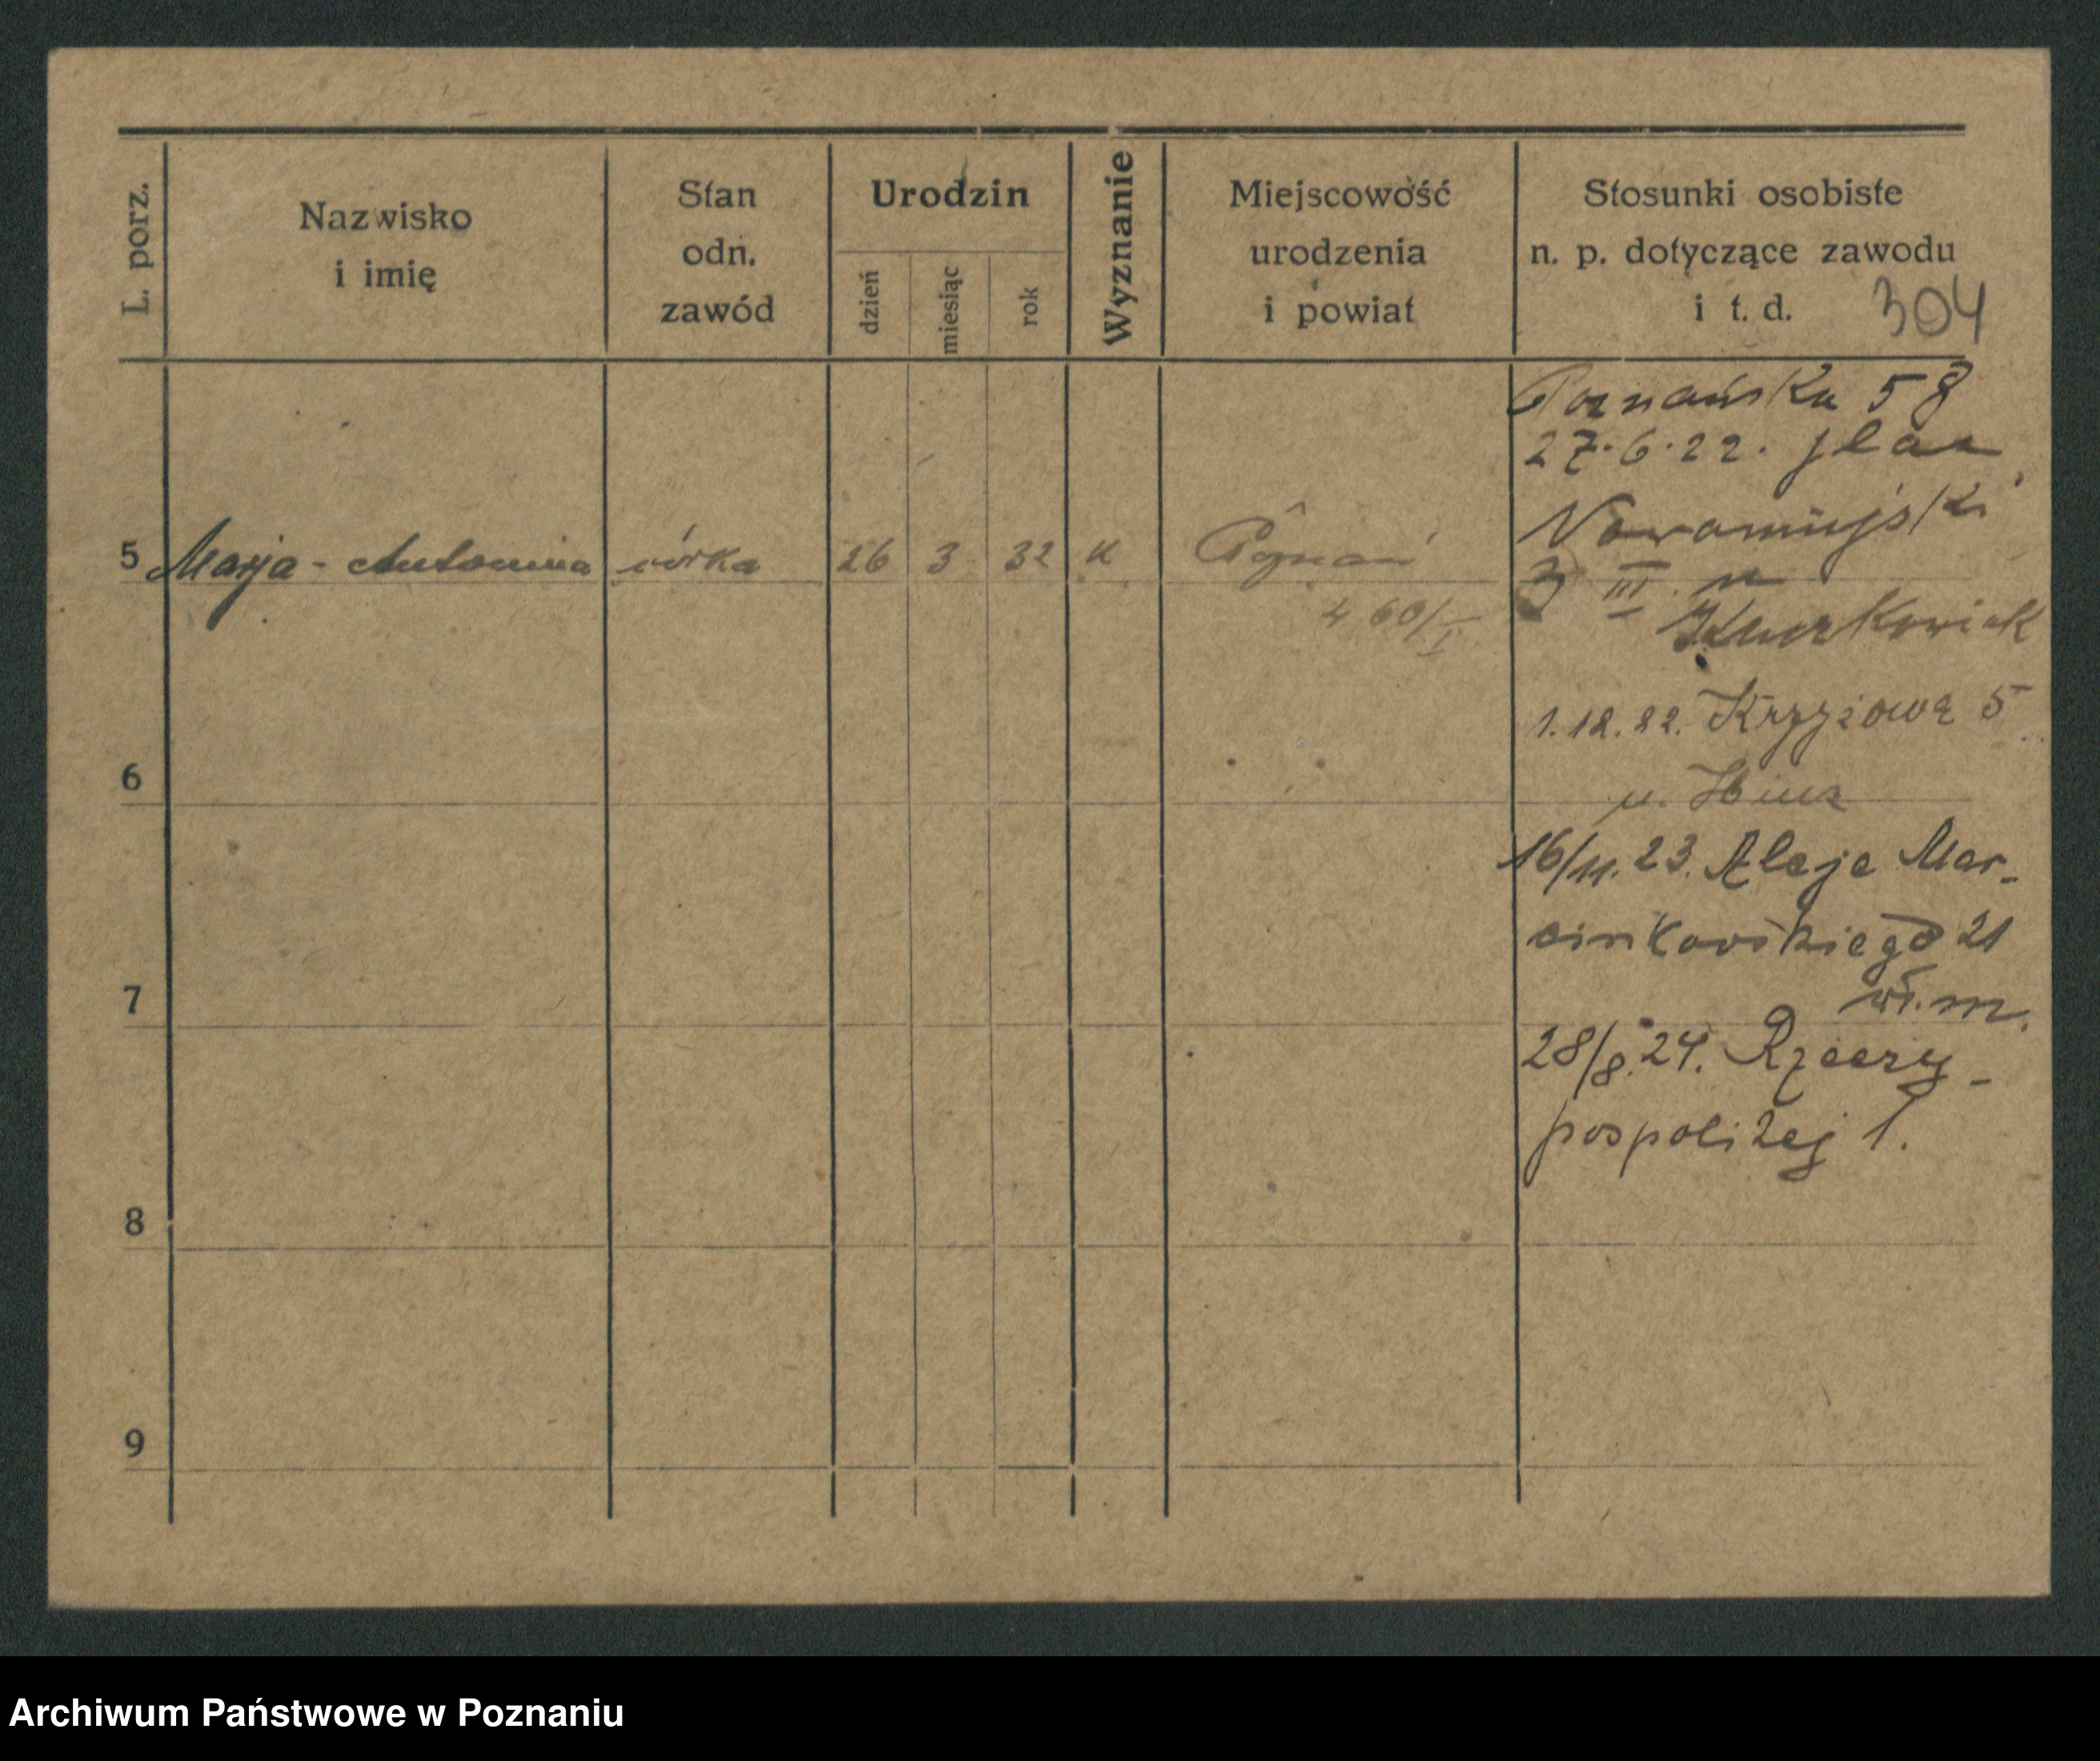 L. porz.
Nazwisko
i imię
Stan
odn.
zawód
Urodzin
dzień
miesiąc
rok
Wyznanie
Miejscowość
urodzenia
i powiat
Stosunki osobiste
n. p. dotyczące zawodu
i t. d.
304
Poznańska 58
27.6.22. plac
Nowomiejski
3 III u
5 Marja - Antonina córka 26 3 32 K Poznań
460/I
1.12.22. Krzyżowa 5
6
u. Hinz
16/11.23. Aleje Mar-
cinkowskiego 21
7
wł. m.
28/8.24. Rzeczy-
pospolitej 1.
8
9
Archiwum Państwowe w Poznaniu